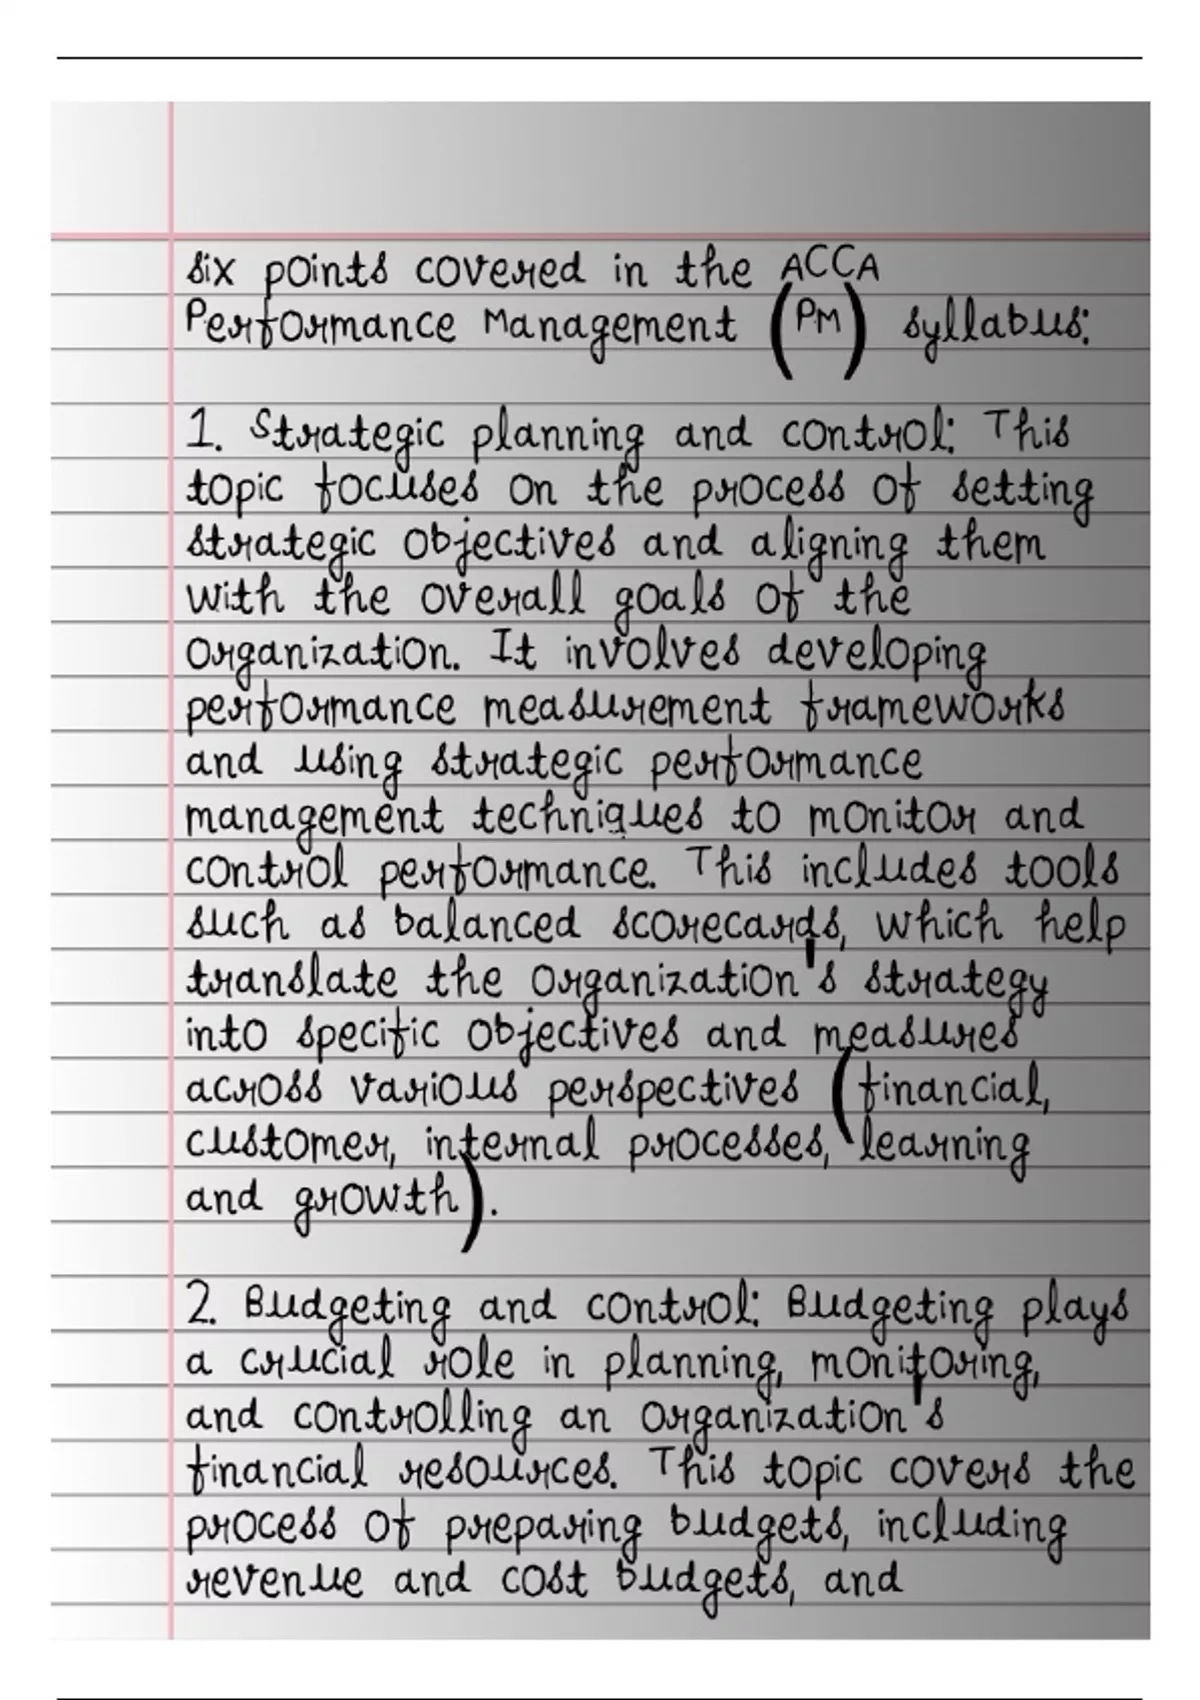 six points covered in the ACCA
Performance Management (PM) syllabus:
1. Strategic planning and control: This
topic focuses on the process of setting
strategic objectives and aligning them
with the overall goals of the
organization. It involves developing
performance measurement frameworks
and using strategic performance
management techniques to monitor and
control performance. This includes tools
such as balanced scorecards, which help
translate the organization's strategy
into specific objectives and measures
across various perspectives (financial,
customer, internal processes, learning
and growth).
2. Budgeting and control: Budgeting plays
a crucial role in planning, monitoring,
and controlling an organization's
financial resources. This topic covers the
process of preparing budgets, including
revenue and cost budgets, and